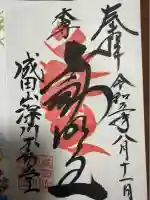 奉拝
令和五年八月十一日
大本尊
不動明王
成田山深川不動堂